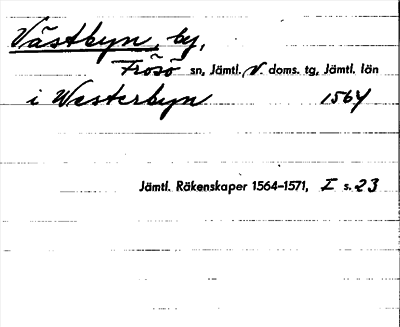 Västbyn, by,
Frösö sn, Jämtl. V. doms. tg, Jämtl. län
i Westerbyn 1564
Jämtl. Räkenskaper 1564–1571, I s. 23